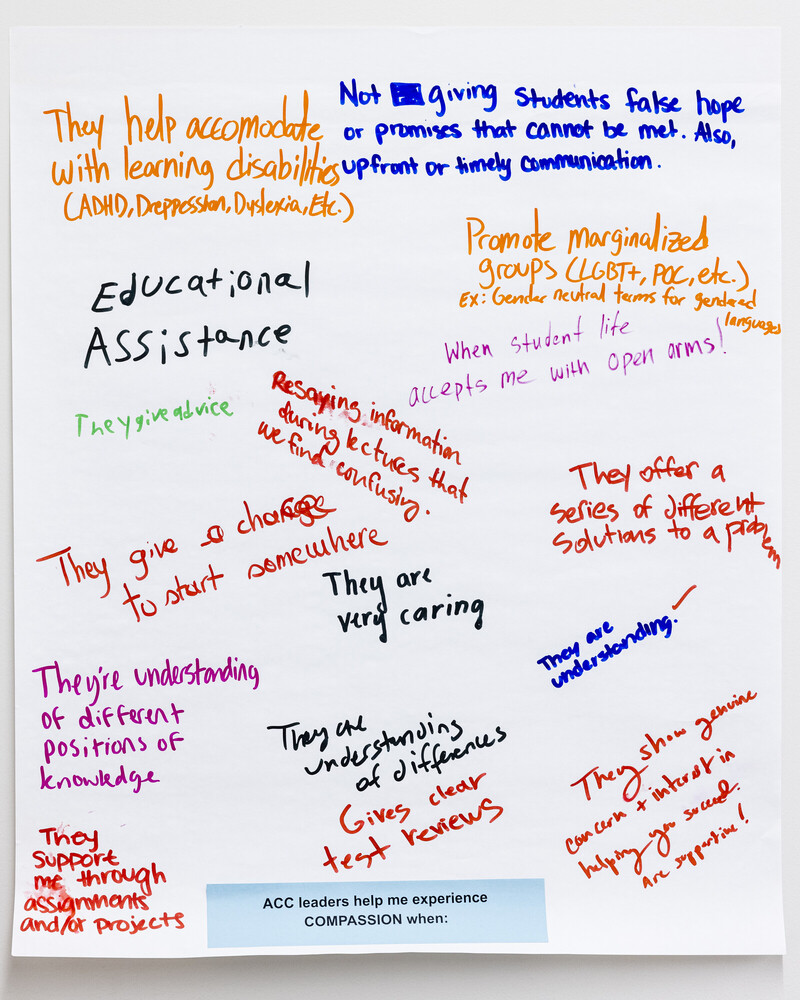 They help accomodate
with learning disabilities
(ADHD, Dreppession, Dyslexia, Etc.)
Not giving students false hope
or promises that cannot be met. Also,
upfront or timely communication.
Promote marginalized
groups (LGBT+, POC, etc.)
Ex: Gender neutral terms for gendered
languages
Educational
Assistance
When student life
accepts me with open arms!
They give advice
Resaying information
during lectures that
we find confusing.
They offer a
series of different
solutions to a problem
They give a
to start somewhere
They are
very caring
They are
understanding.
They're understanding
of different
positions of
knowledge
They are
understanding
of differences
They show genuine
concern + interest in
helping you succeed.
Are supportive!
Gives clear
test reviews
They
support
me through
assignments
and/or projects
ACC leaders help me experience
COMPASSION when: